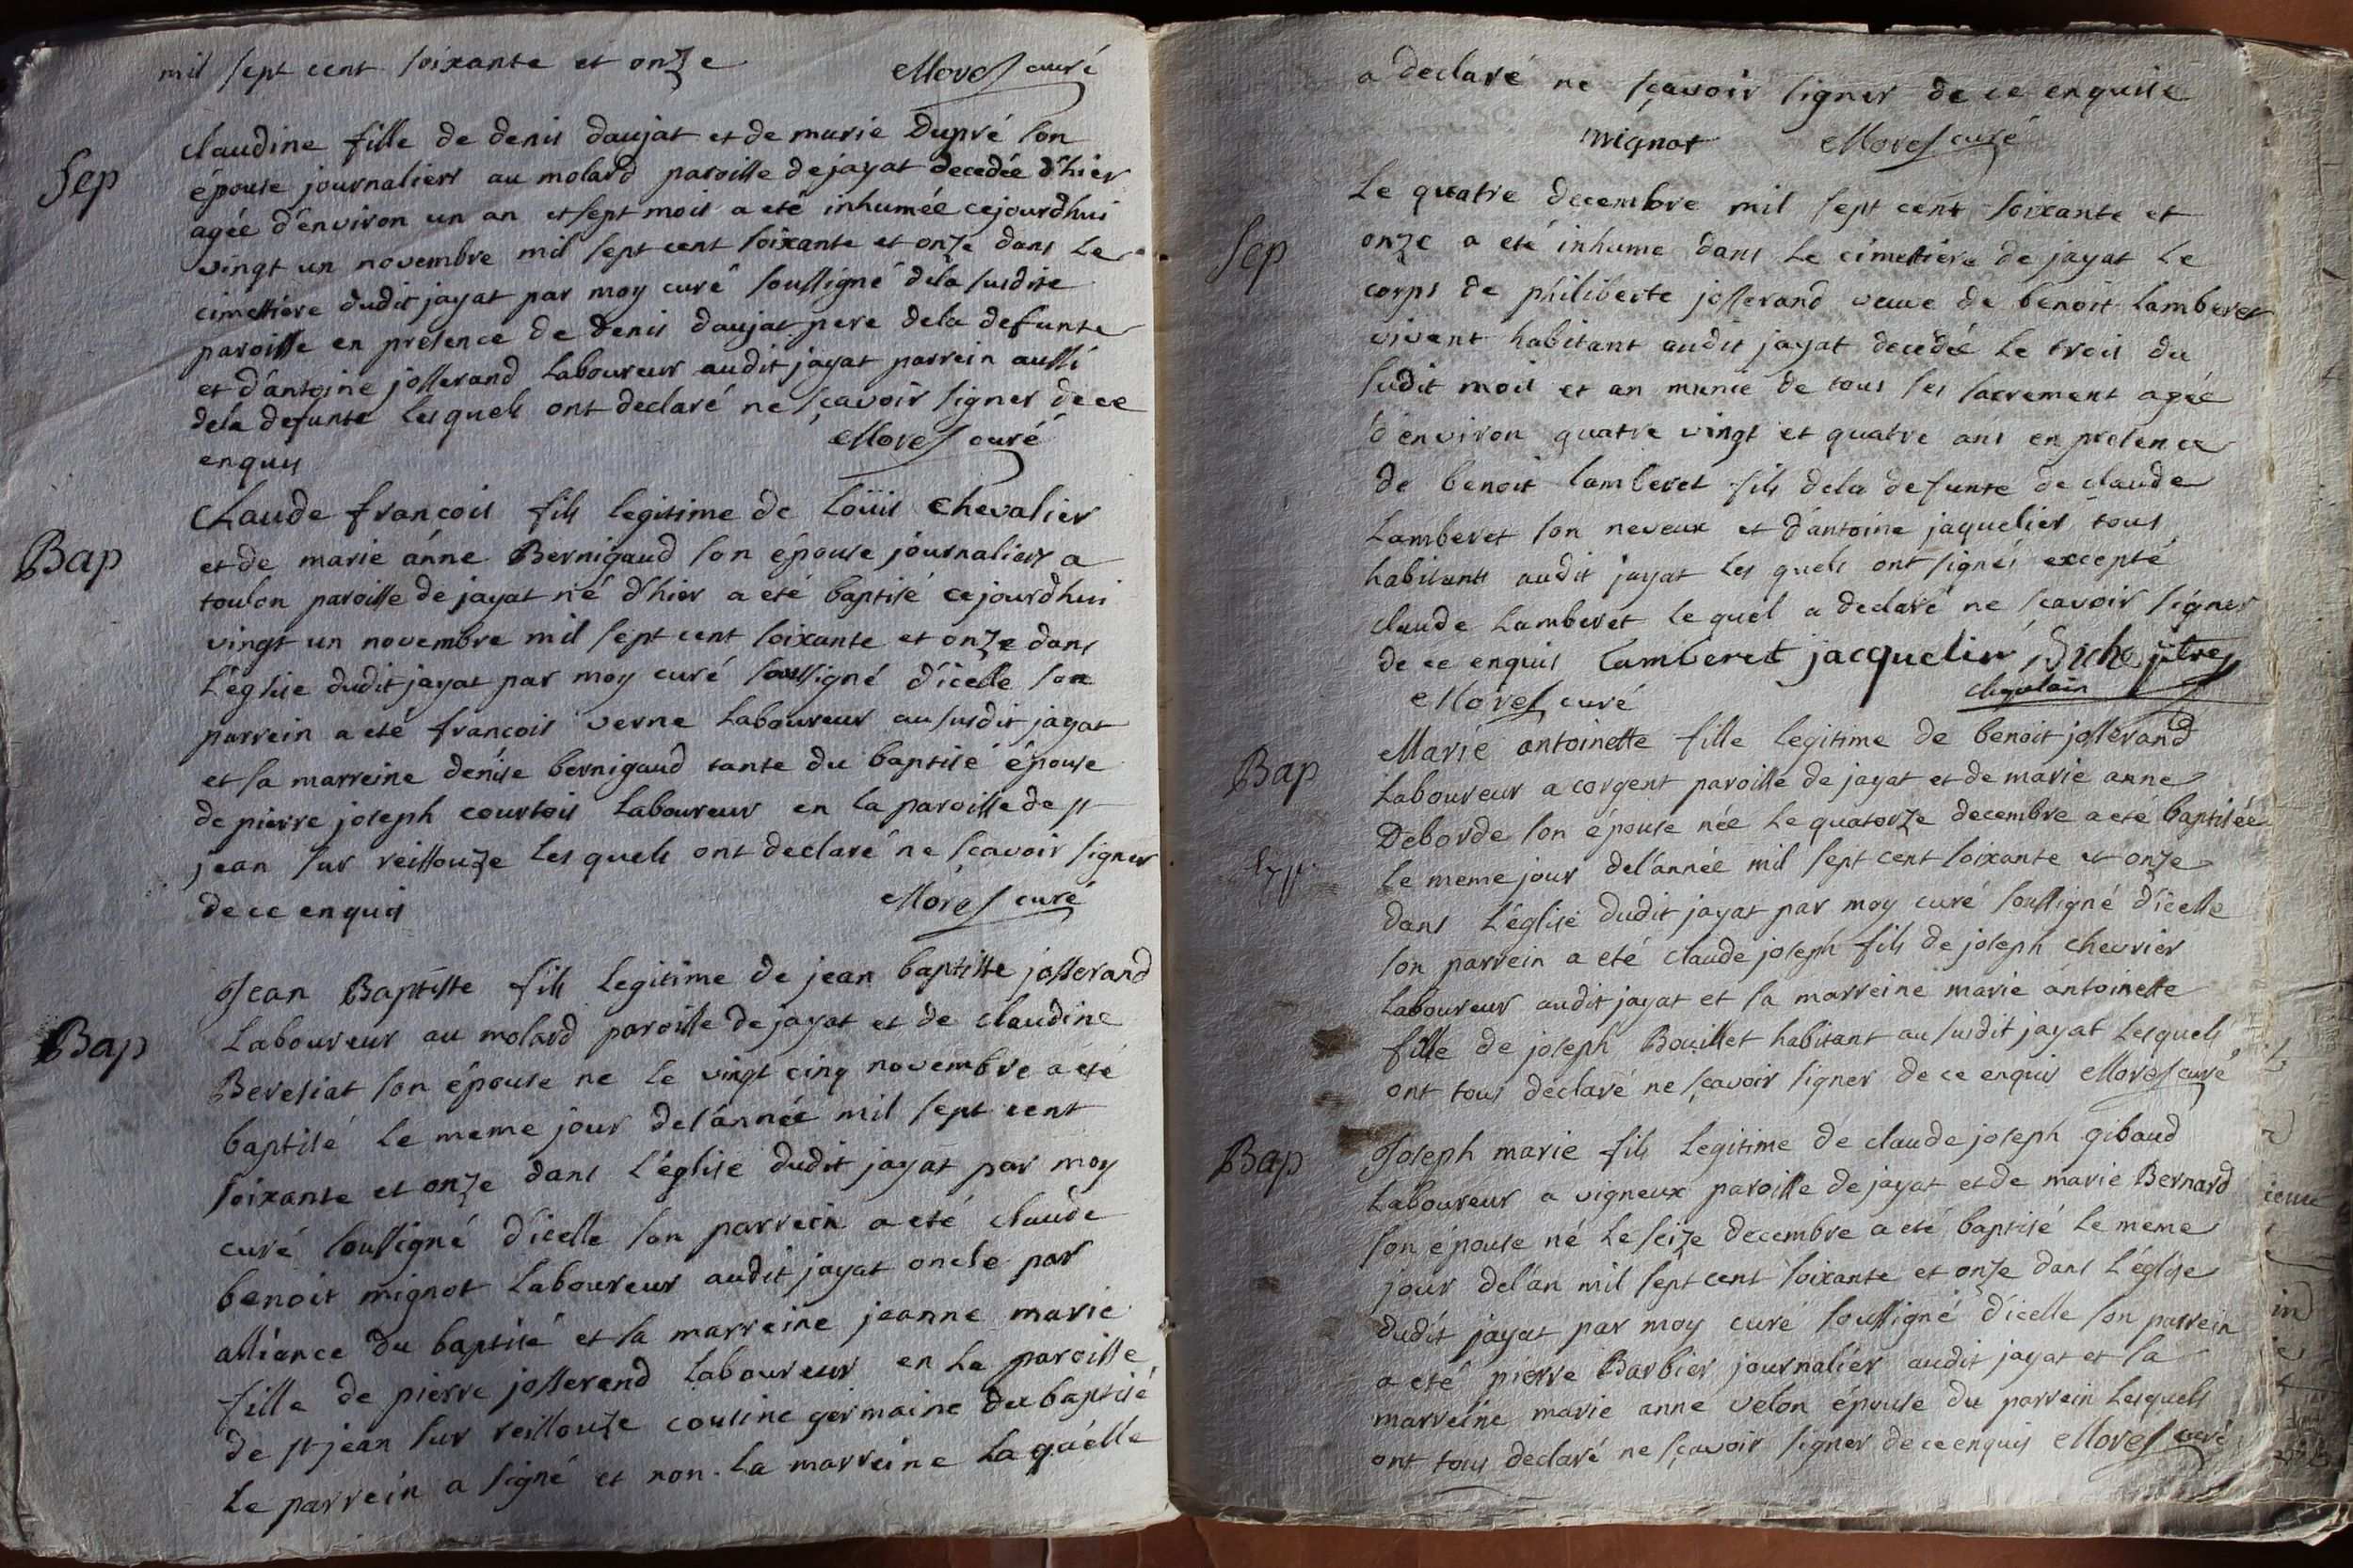 mil sept cent soixante et onze Morel curé
Sep
claudine fille de denis daujat et de marie Dupré son
épouse journaliers au molard paroisse de jayat decedée d'hier
agée d'énviron un an et sept mois a eté inhumée cejourdhui
vingt un novembre mil sept cent soixante et onze dans Le
cimettiere dudit jayat par moy curé soussigné dela susdite
paroisse en presence de denis daujat pere dela defunte
et d'antoine josserand Laboureur audit jayat parrein aussi
dela defunte Lesquels ont declaré ne sçavoir signer de ce
enquis Morel curé
Bap
Claude francois fils legitime de Loüis chevalier
et de marie ánne Bernigaud son épouse journaliers a
toulon paroisse de jayat né d'hier a eté baptisé cejourdhui
vingt un novembre mil sept cent soixante et onze dans
L'église dudit jayat par moy curé soussigné d'icelle son
parrein a eté francois verne Laboureur au susdit jayat
et sa marreine denise bernigaud tante du baptisé épouse
de pierre joseph courtois Laboureur en la paroisse de st
jean sur reissouze Lesquels ont declaré ne sçavoir signer
de ce enquis Morel curé
Bap
Jean Baptiste fils legitime de jean baptiste josserand
Laboureur au molard paroisse de jayat et de claudine
Beresiat son épouse ne le vingt cinq novembre a eté
baptisé Le meme jour del'année mil sept cent
soixante et onze dans L'église dudit jayat par moy
curé soussigné d'icelle son parrein a eté claude
benoit mignot Laboureur audit jayat oncle par
alliance du baptisé et sa marreine jeanne marie
fille de pierre josserand Laboureur en La paroisse
de st jean sur reissouze cousine germaine du baptisé
Le parrein a signé et non La marreine Laquélle
a declaré ne sçavoir signer de ce enquise
mignot Morel curé
Sep
Le quatre decembre mil sept cent soixante et
onze a eté inhume dans Le cimettiere de jayat Le
corps de philiberte josserand veuve de benoit Lamberet
vivant habitant audit jayat decedée Le trois du
sudit mois et an munie de tous ses sacrement agée
d'environ quatre vingt et quatre ans en presence
de benoit lamberet fils dela defunte de claude
Lamberet son neveux et d'antoine jaquelier tous
habitants audit jayat Les quels ont signés excepté
claude Lamberet Le quel a declaré ne sçavoir signer
de ce enquis lamberet jacquelin
Morel curé
Bap
Marie antoinette fille legitime de benoit josserand
Laboureur a corgent paroisse de jayat et de marie anne
Deborde son épouse née Le quatorze decembre a eté baptisée
Le meme jour del'année mil sept cent soixante et onze
dans L'église dudit jayat par moy curé soussigné d'icelle
son parrein a eté claude joseph fils de joseph chevrier
Laboureur audit jayat et sa marreine marie antoinette
fille de joseph Bouillet habitant au susdit jayat Lesquels
ont tous déclaré ne sçavoir signer de ce enquis Morel curé
Bap
Joseph marie fils legitime de claude joseph gibaud
Laboureur a vigneux paroisse de jayat et de marie Bernard
son épouse né Le seize decembre a eté baptisé Le meme
jour del'an mil sept cent soixante et onze dans L'église
dudit jayat par moy curé soussigné d'icelle son parrein
a eté pierre Barbier journalier audit jayat et sa
marreine marie anne velon épouse du parrein Lesquels
ont tous declaré ne sçavoir signer de ce enquis Morel curé